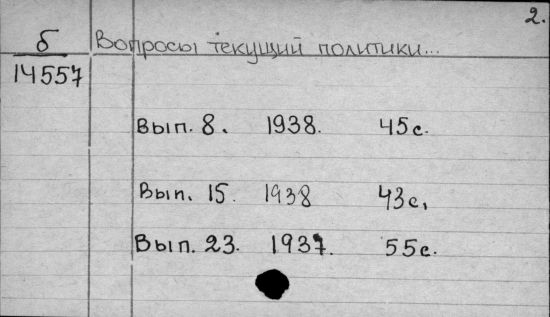 2.
б
14557
Вопросы текущий политики...
Вып. 8. 1938. 45с.
Вып. 15. 1938 43с.
Вып. 23. 1937. 55с.